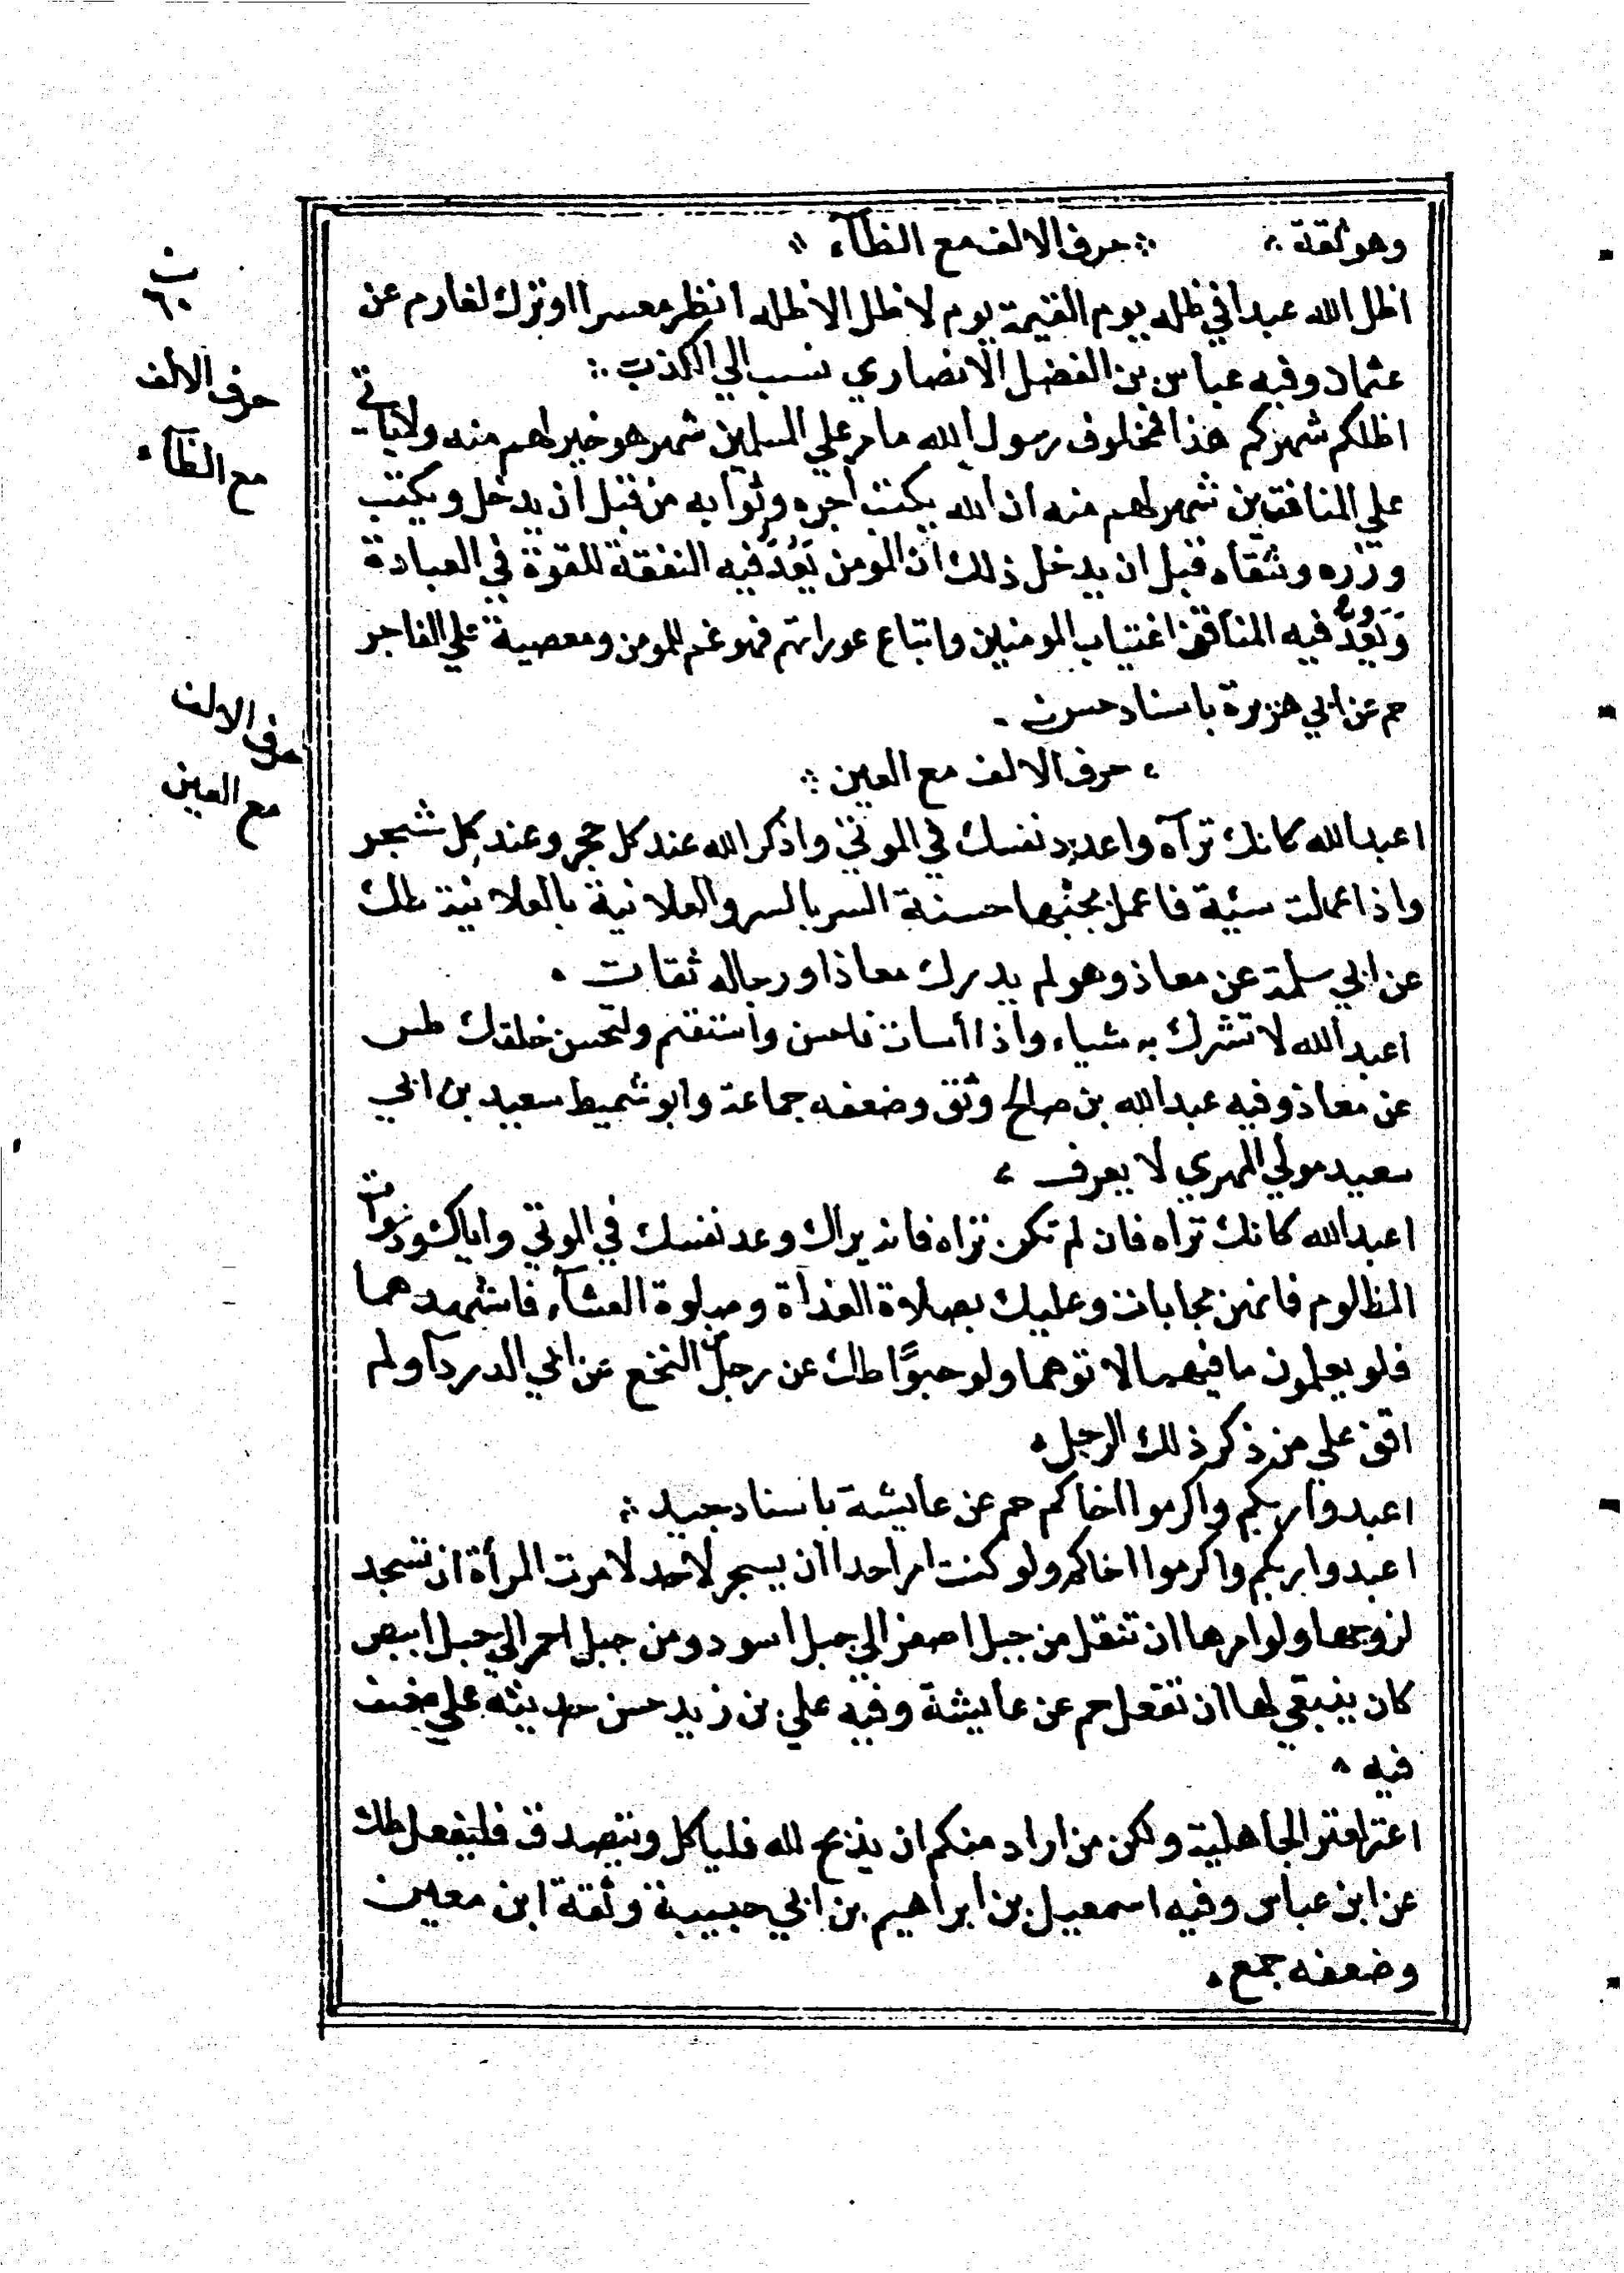 وهو ثقة ۞ حرف الالف مع الظآء
اظل الله عبدا في ظله يوم القيمة يوم لا ظل الا ظله انظر معسرا او ترك لغارم عن
عثمان وفيه عباس بن الفضل الانصاري نسب الي الكذب
اظلكم شهركم هذا بمحلوف رسول الله ما مر علي المسلمين شهر هو خير لهم منه ولا ياتي
علي المنافقين شهر لهم منه ان الله يكتب اجره وثوابه من قبل ان يدخل ويكتب
وزره وشقاه قبل ان يدخل ذلك ان المومن يَعُدّ فيه النفقة للقوة في العبادة
وَيَعُدُّ فيه المنافق اغتياب المومنين واتباع عوراتهم فهو غنم للمومن ومعصية علي الفاجر
حم عن ابي هريرة باسناد حسن
حرف الالف مع العين
اعبد الله كانك ترآه واعدد نفسك في الموتي واذكر الله عند كل حجر وعند كل شجر
واذا عملت سئية فاعمل بجنبها حسنة السر بالسر والعلانية بالعلانية طك
عن ابي سلمة عن معاذ وهو لم يدرك معاذا ورجاله ثقات
اعبد الله لا تشرك به شياء واذا أسات فاحسن واستقم ولتحسن خلقك طس
عن معاذ وفيه عبد الله بن صالح وثق وضعفه جماعة وابو شميط سعيد بن ابي
سعيد مولي المهري لا يعرف
اعبد الله كانك تراه فان لم تكن تراه فانه يراك وعد نفسك في الموتي واياك ودعوات
المظلوم فانهن مجابات وعليك بصلاة الغداة وصلوة العشآء فاشهدهما
فلو يعلمون ما فيهما لاتوهما ولو حبوًا طك عن رجل من النخع عن ابي الدردآ ولم
اقف علي من ذكر ذلك الرجل
اعبدوا ربكم واكرموا اخاكم حم عن عايشة باسناد جيد
اعبدوا ربكم واكرموا اخاكم ولو كنت امر احدا ان يسجر لاحد لامرت المرأة ان تسجد
لزوجها ولو امرها ان تنقل من جبل اصفر الي جبل اسود ومن جبل احمر الي جبل ابيض
كان ينبغي لها ان تفعل حم عن عايشة وفيه علي بن زيد حسن حديثه علي ضعف
فيه
الجاهلية ولكن من اراد منكم ان يذبح لله فلياكل ويتصدق فليفعل طك
عن ابن عباس وفيه اسمعيل بن ابراهيم بن ابي حبيبة وثقة ابن معين
وضعفه جمع
٦٠
حرف الالف
مع الظآء
حرف الالف
مع العين